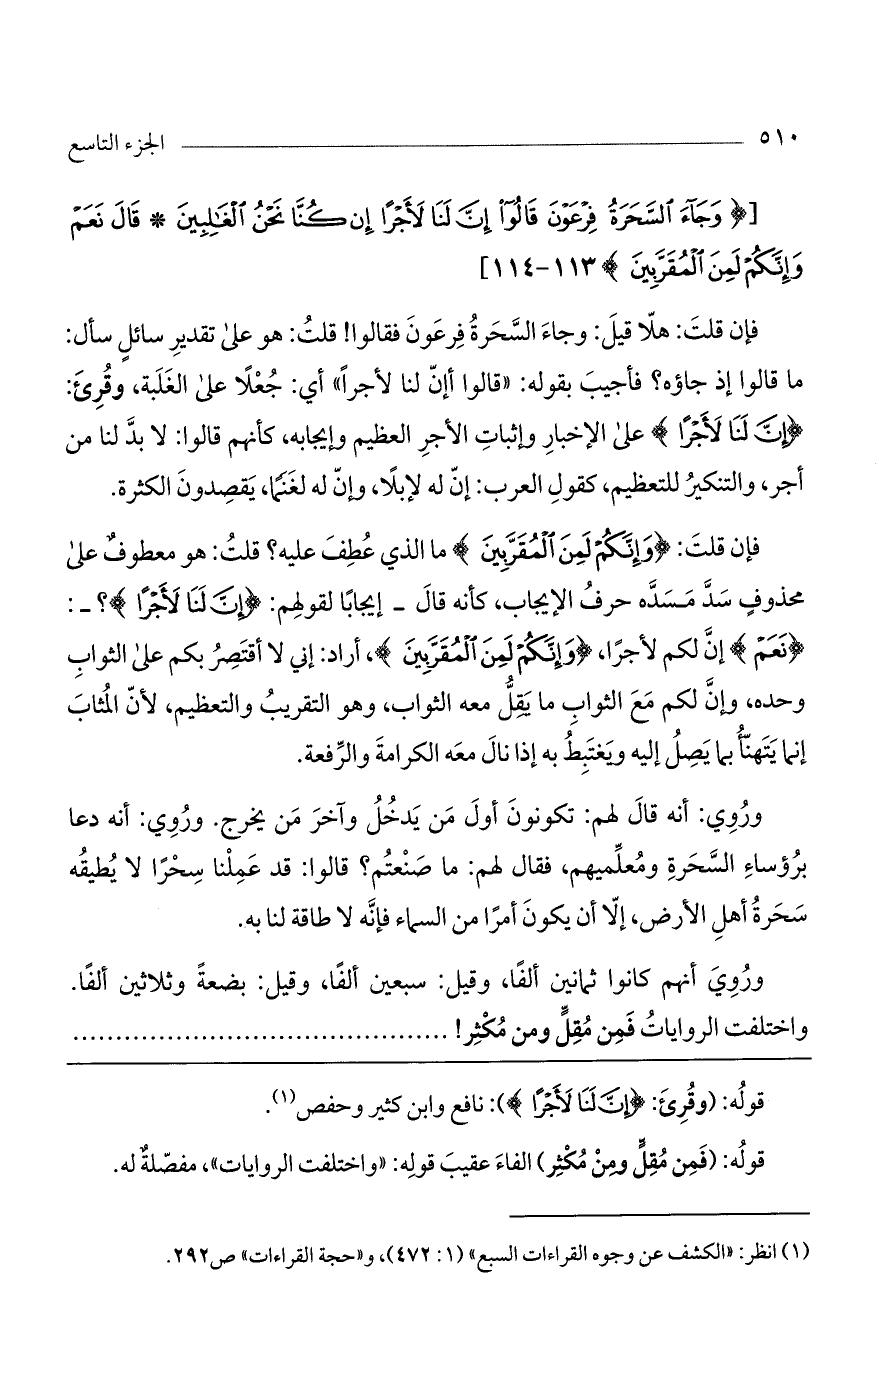 ٥١٠ الجزء التاسع
[﴿ وَجَآءَ ٱلسَّحَرَةُ فِرْعَوْنَ قَالُوٓا۟ إِنَّ لَنَا لَأَجْرًا إِن كُنَّا نَحْنُ ٱلْغَـٰلِبِينَ * قَالَ نَعَمْ
وَإِنَّكُمْ لَمِنَ ٱلْمُقَرَّبِينَ ﴾ ١١٣-١١٤]
فإن قلتَ: هلّا قيلَ: وجاءَ السَّحَرةُ فِرعَونَ فقالوا! قلتُ: هو علىٰ تقديرِ سائلٍ سأل:
ما قالوا إذ جاؤه؟ فأجيبَ بقوله: «قالوا أإنّ لنا لأجراً» أي: جُعْلًا علىٰ الغَلَبة، وقُرِئَ:
﴿إِنَّ لَنَا لَأَجْرًا ﴾ علىٰ الإخبارِ وإثباتِ الأجرِ العظيم وإيجابه، كأنهم قالوا: لا بدَّ لنا من
أجر، والتنكيرُ للتعظيم، كقولِ العرب: إنّ له لإبلًا، وإنّ له لغَنَمًا، يَقصِدونَ الكثرة.
فإن قلتَ: ﴿وَإِنَّكُمْ لَمِنَ ٱلْمُقَرَّبِينَ ﴾ ما الذي عُطِفَ عليه؟ قلتُ: هو معطوفٌ علىٰ
محذوفٍ سَدَّ مَسَدَّه حرفُ الإيجاب، كأنه قالَ ـ إيجابًا لقولهِم: ﴿إِنَّ لَنَا لَأَجْرًا ﴾؟ ـ :
﴿نَعَمْ ﴾ إنَّ لكم لأجرًا، ﴿وَإِنَّكُمْ لَمِنَ ٱلْمُقَرَّبِينَ ﴾، أراد: إني لا أقتَصِرُ بكم علىٰ الثوابِ
وحده، وإنَّ لكم مَعَ الثوابِ ما يَقِلُّ معه الثواب، وهو التقريبُ والتعظيم، لأنّ المُثابَ
إنما يَتَهنَّأُ بما يَصِلُ إليه ويَغتَبِطُ به إذا نالَ معَه الكرامةَ والرِّفعة.
ورُوِي: أنه قالَ لهم: تكونونَ أولَ مَن يَدخُلُ وآخرَ مَن يخرج. ورُوِي: أنه دعا
برُؤساءِ السَّحَرةِ ومُعلِّميهم، فقال لهم: ما صَنْعتُم؟ قالوا: قد عَمِلْنا سِحْرًا لا يُطيقُه
سَحَرةُ أهلِ الأرض، إلّا أن يكونَ أمرًا من السماء فإنَّه لا طاقة لنا به.
ورُوِيَ أنهم كانوا ثمانين ألفًا، وقيل: سبعين ألفًا، وقيل: بضعةً وثلاثين ألفًا.
واختلفت الرواياتُ فَمِن مُقِلٍّ ومن مُكْثِر! ............................................
قولُه: (وقُرِئَ: ﴿إِنَّ لَنَا لَأَجْرًا ﴾): نافع وابن كثير وحفص(١).
قولُه: (فَمِن مُقِلٍّ ومِنْ مُكْثِر) الفاءَ عقيبَ قولِه: «واختلفت الروايات»، مفصّلةٌ له.
(١) انظر: «الكشف عن وجوه القراءات السبع» (١: ٤٧٢)، و«حجة القراءات» ص٢٩٢.